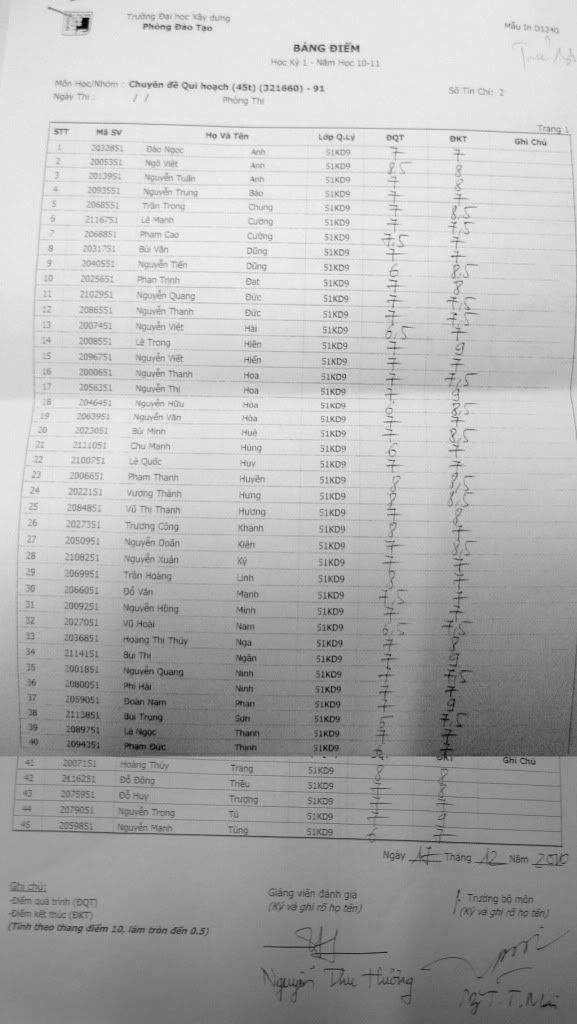 Trường Đại học Xây dựng
Phòng Đào Tạo
Mẫu In D1240
BẢNG ĐIỂM
Học Kỳ 1 - Năm Học 10-11
Môn Học/Nhóm : Chuyên đề Qui hoạch (45t) (321660) - 91
Số Tín Chỉ: 2
Ngày Thi : / / Phòng Thi
Trang 1
STT Mã SV Họ Và Tên Lớp Q.Lý ĐQT ĐKT Ghi Chú
1 2032851 Đào Ngọc Anh 51KD9 7 7
2 2005351 Ngô Việt Anh 51KD9 8,5 8
3 2013951 Nguyễn Tuấn Anh 51KD9 7 8
4 2093551 Nguyễn Trung Bảo 51KD9 7 7
5 2068551 Trần Trọng Chung 51KD9 7 8,5
6 2116751 Lê Mạnh Cường 51KD9 7 7,5
7 2068851 Phạm Cao Cường 51KD9 7,5 7
8 2031751 Bùi Văn Dũng 51KD9 7 7
9 2040551 Nguyễn Tiến Dũng 51KD9 6 8,5
10 2025651 Phan Trịnh Đạt 51KD9 7 8
11 2102951 Nguyễn Quang Đức 51KD9 7 7,5
12 2086551 Nguyễn Thanh Đức 51KD9 7 7,5
13 2007451 Nguyễn Việt Hải 51KD9 6,5 7
14 2008551 Lê Trọng Hiền 51KD9 7 9
15 2096751 Nguyễn Viết Hiển 51KD9 7 7
16 2000651 Nguyễn Thanh Hoa 51KD9 7 7,5
17 2056351 Nguyễn Thị Hoa 51KD9 7 9
18 2046451 Nguyễn Hữu Hòa 51KD9 6 8,5
19 2063951 Nguyễn Văn Hòa 51KD9 7 7
20 2023051 Bùi Minh Huệ 51KD9 7 8,5
21 2111051 Chu Mạnh Hùng 51KD9 6 7
22 2100751 Lê Quốc Huy 51KD9 7 7
23 2006651 Phạm Thanh Huyền 51KD9 8 8,5
24 2022151 Vương Thành Hưng 51KD9 8 8,5
25 2084851 Vũ Thị Thanh Hương 51KD9 7 8
26 2027351 Trương Công Khánh 51KD9 8 7
27 2050951 Nguyễn Doãn Kiên 51KD9 7 8,5
28 2108251 Nguyễn Xuân Ký 51KD9 7 7
29 2069951 Trần Hoàng Linh 51KD9 8 7
30 2066051 Đỗ Văn Mạnh 51KD9 7,5 7
31 2009251 Nguyễn Hồng Minh 51KD9 7 7
32 2027051 Vũ Hoài Nam 51KD9 6,5 7,5
33 2036851 Hoàng Thị Thúy Nga 51KD9 7 8
34 2114151 Bùi Thị Ngân 51KD9 7 9
35 2001851 Nguyễn Quang Ninh 51KD9 7 7
36 2080051 Phí Hải Ninh 51KD9 7 7
37 2059051 Đoàn Nam Phan 51KD9 7 9
38 2113851 Bùi Trung Sơn 51KD9 7,5
39 2089751 Lê Ngọc Thanh 51KD9 7 7
40 2094351 Phạm Đức Thịnh 51KD9 7
ĐKT Ghi Chú
41 2007151 Hoàng Thùy Trang 51KD9 8 8
42 2116251 Đỗ Đông Triều 51KD9 7 8
43 2075951 Đỗ Huy Trượng 51KD9 7 7
44 2079051 Nguyễn Trọng Tú 51KD9 7 9
45 2059851 Nguyễn Mạnh Tùng 51KD9 6 7
Ngày 17 Tháng 12 Năm 2010
Ghi chú:
-Điểm quá trình (ĐQT)
-Điểm kết thúc (ĐKT)
(Tính theo thang điểm 10, làm tròn đến 0.5)
Giảng viên đánh giá
(Ký và ghi rõ họ tên)
Nguyễn Thu Hường
Trưởng bộ môn
(Ký và ghi rõ họ tên)